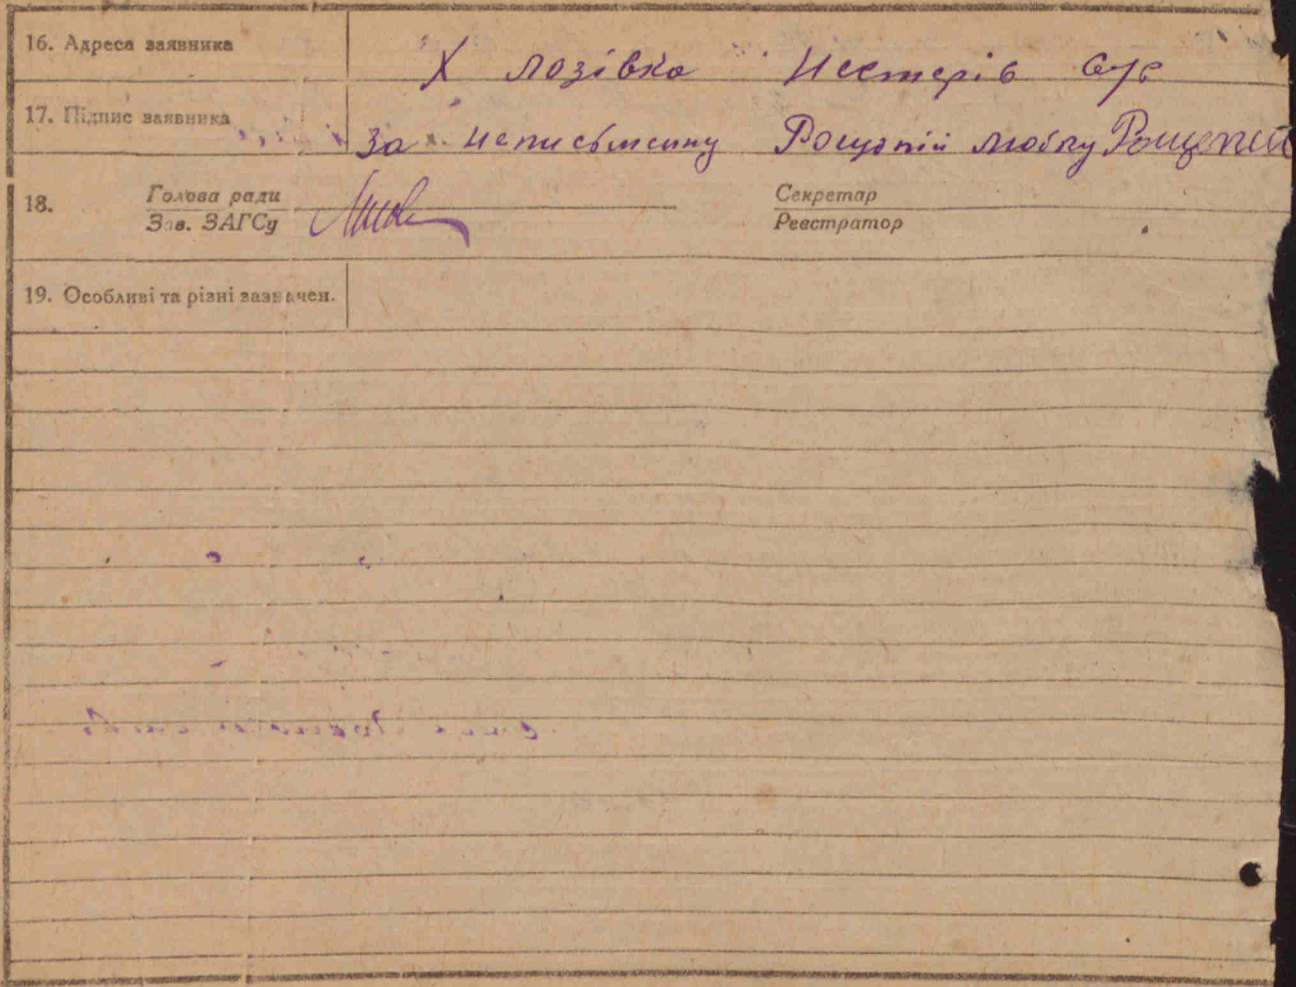 16. Адреса заявника Х Лозівка Нестерів с/с
17. Підпис заявника За неписьменну Рощопій Любку Рощепій
18. Голова ради Секретар
Зав. ЗАГСу Реєстратор
19. Особливі та різні зазначен.